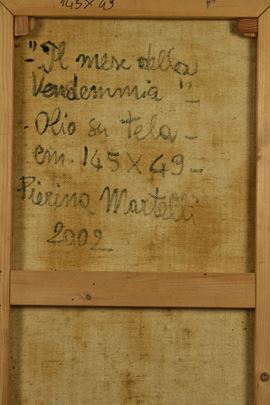 145X49
"Il mese della
Vendemmia"-
- Olio su tela -
cm. 145X49 -
Pierina Martelli
2002